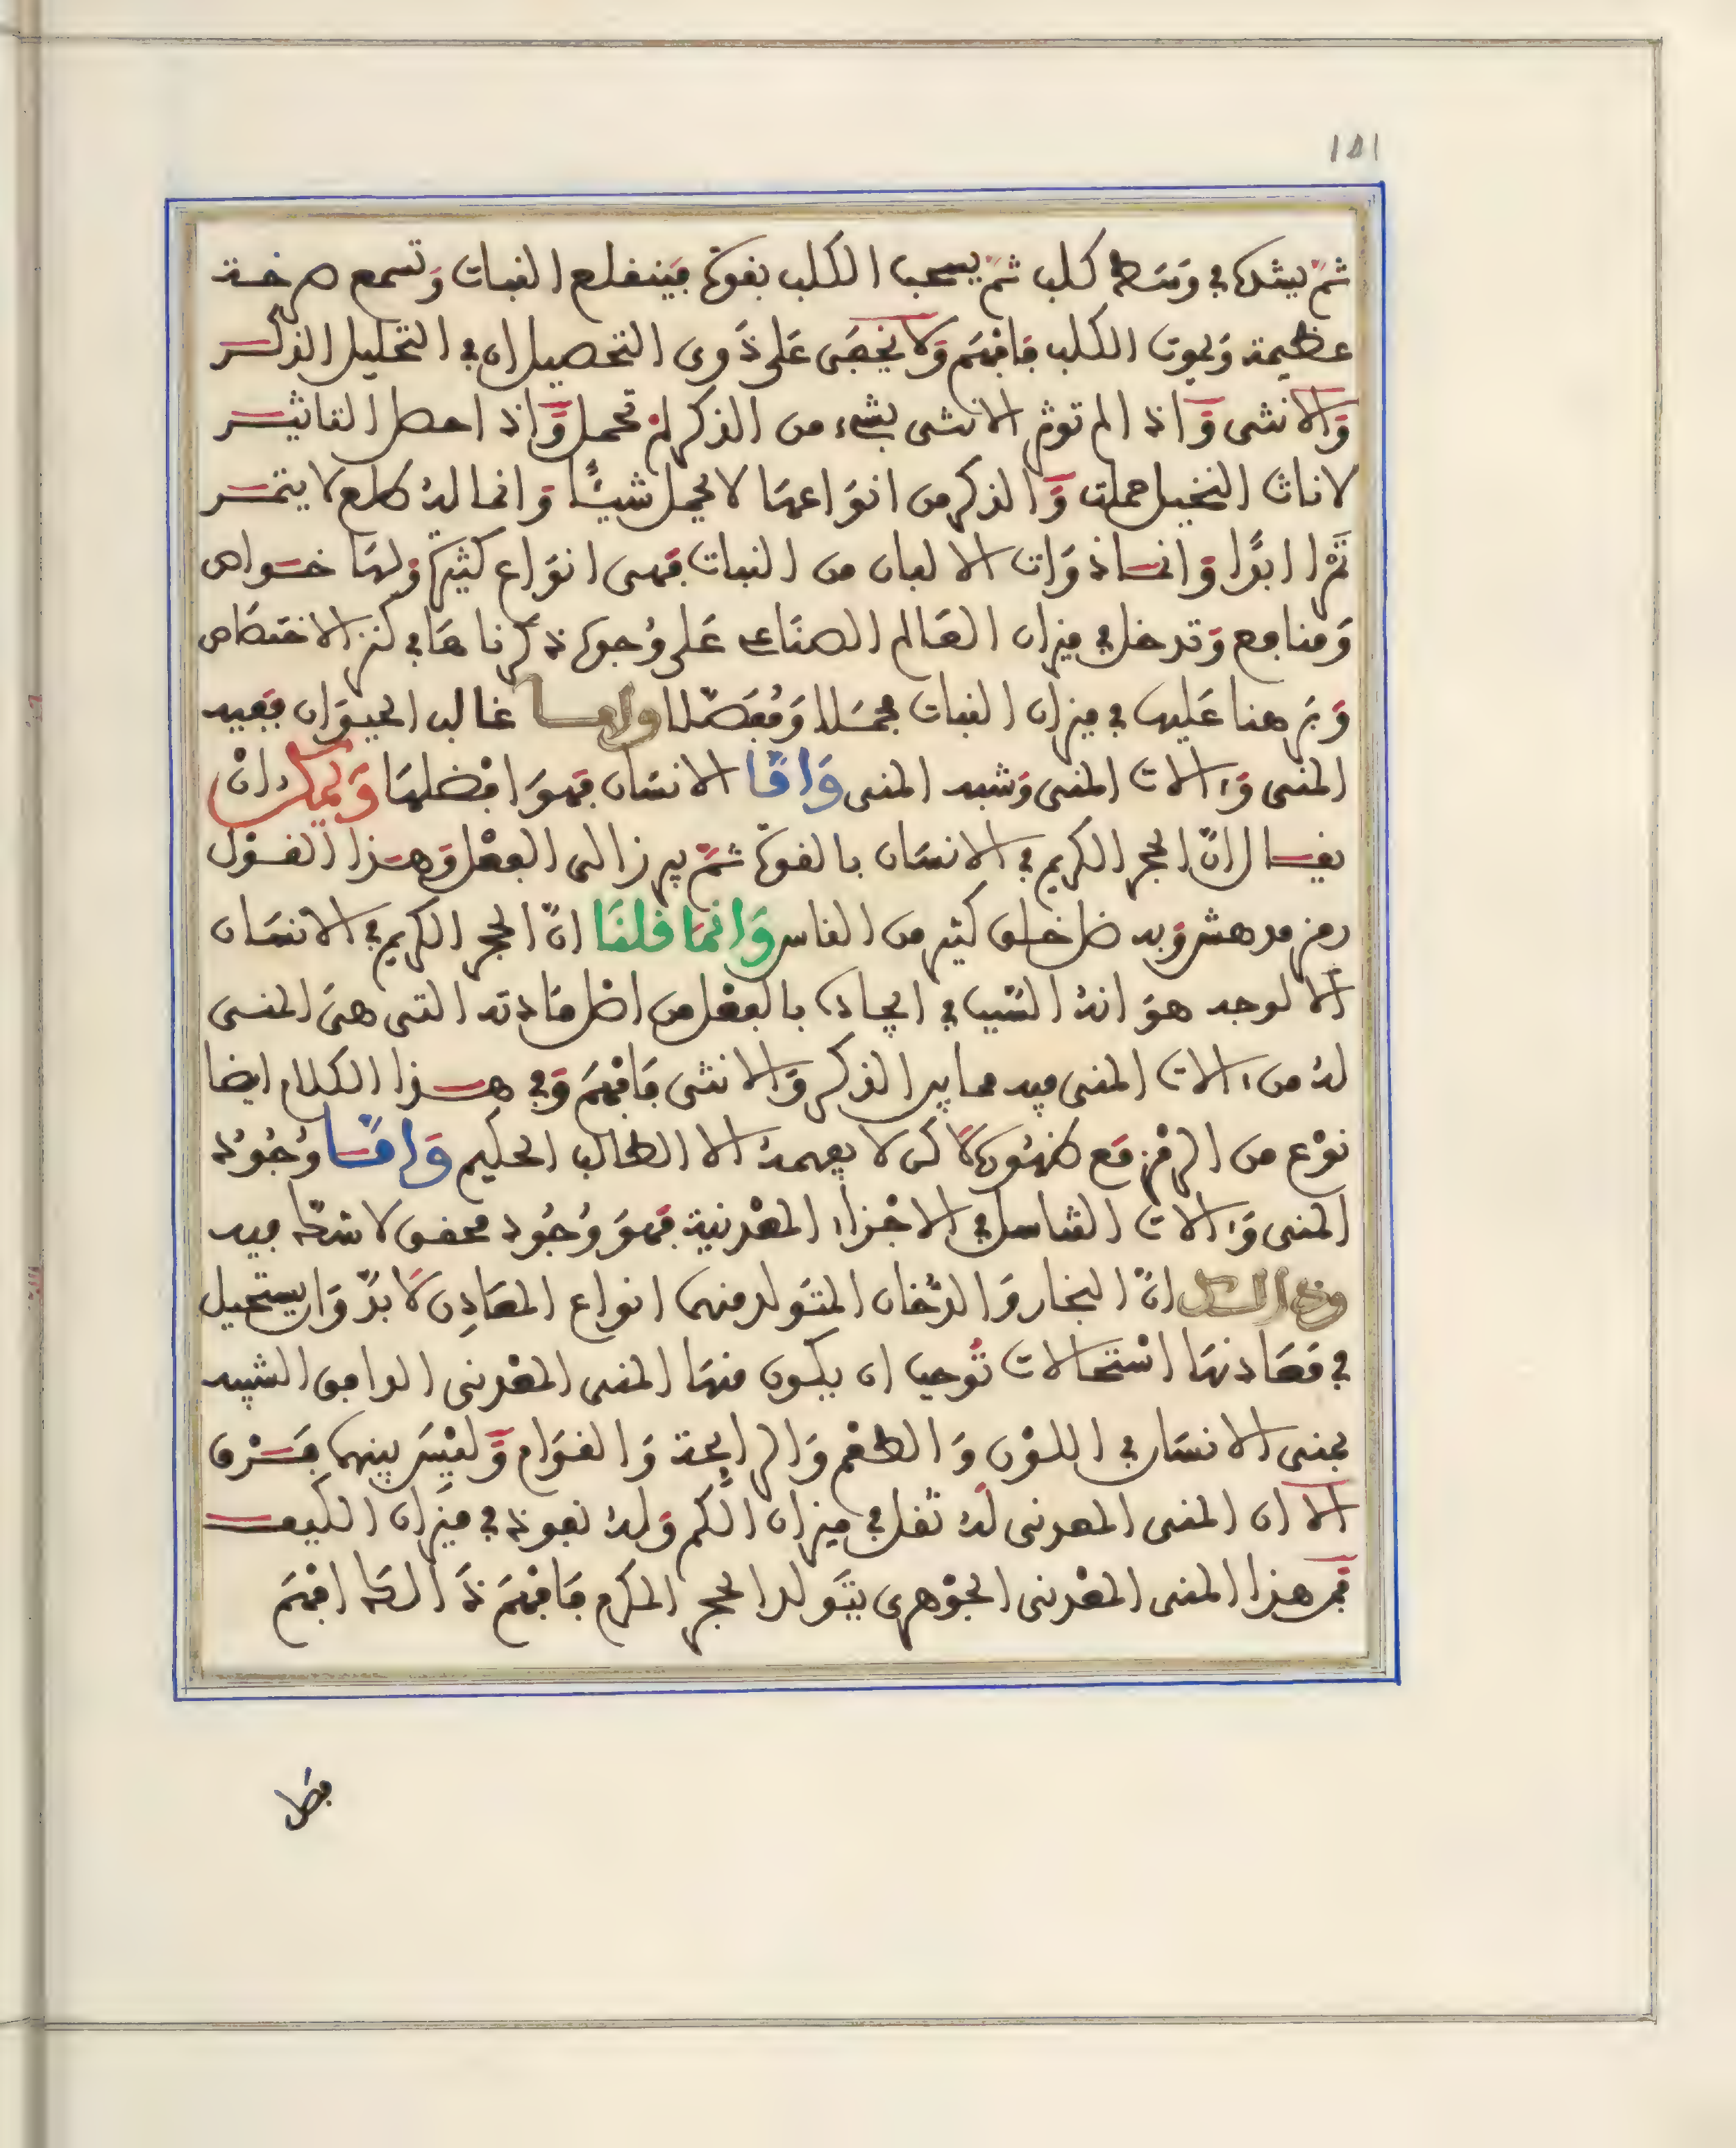 ١٥١
ثمّ يشدها في وَسَط كلب ثمّ يسحب الكلب بقوة فينقلع النبات وَتسمع صرخة
عظيمة وَيموت الكلب فافهَم وَلا يخفَى عَلى ذَوى التحصيل ان في النخيل الذكر
وَالانثى وَاذا لم توثر الانثى بشىء من الذكر لم تحمل وَاذا حصل التاثير
لاناث النخيل حملت وَالذكر من انوَاعهَا لا يحمل شيئًا وَانما له طلع لا يتمر
تمرًا ابدًا وَانما ذوَات الالبان من النبات فهى انوَاع كثيرة وَلهَا خوَاص
وَمنافع وَتدخل في ميزان العَالم الصنَاعى عَلى وُجوه ذكرناهَا في كنز الاختصَاص
وَبرهنا عَليها في ميزان النبات مجمَلا وَمُفَصّلا واما غالب الحيوَان ففيه
المنى وَءالات المنى وَشبه المنى وَامّا الانسَان فهوَ افضلهَا وَيمكن انْ
يقال انّ الحجر الكريم في الانسَان بالقوة ثمّ يبرز الى الفعْل وَهذا القوْل
رمز مدهش وَبه ضل خلق كثير من الناس وَانمَا قلنَا انّ الحجر الكريم في الانسَان
الا لوجه هوَ انهُ السّبب في ايجاده بالفعْل من اصْل مَادته التى هىَ المنى
لهُ من ءالات المنى فيه مما بين الذكر وَالانثى فَافهَمْ وَفي هذا الكلام ايضا
نوْع من الرمْز مَع ظهُوره لَاكن لا يفهمهُ الا الطالب الحكيم وَامّا وُجُودُ
المنى وَءالات التناسل في الاجْزاء المعْدنية فهوَ وُجُود محقق لا شكّ فيه
وذالك انّ البخار وَالدُّخان المتوَلد منهمَا انواع المعَادِن لَابدّ وَان يستحيل
في مَعَادنهَا اسْتحَالات تُوجب ان يكون منهَا المنى المعْدنى الموافق الشبيه
بمنى الانسَان في اللوْن وَالطعْم وَالرايحة وَالقوَام وَليْسَ بينهما فرْق
الا ان المنى المعدنى لهُ ثقل في ميزان الكم وَلهُ نفوذ في ميزَان الكيف
فمن هذا المنى المعْدنى الجوْهرى يتوَلد الحجر المكرم فَافهَمْ ذَالك افهَمْ
فصْل